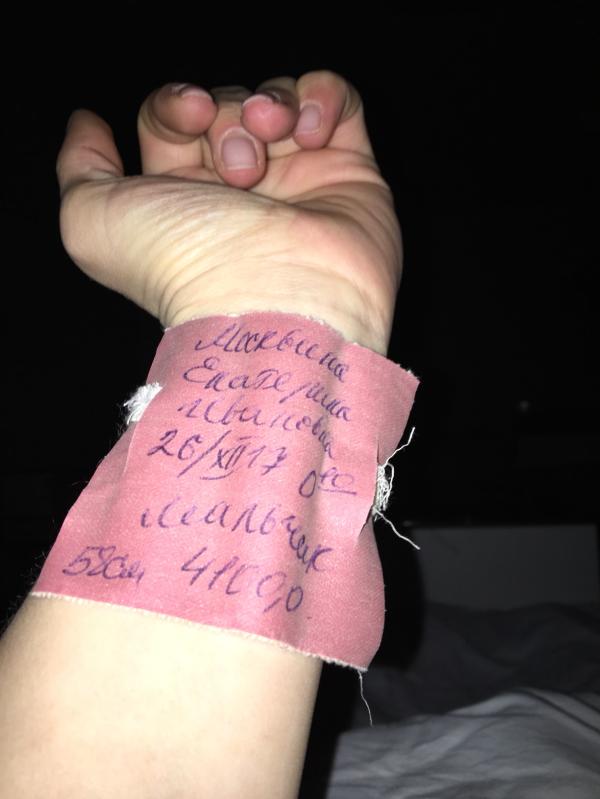 Москвина
Екатерина
Ивановна
26/XII 17 0⁴⁰
Мальчик
52см 4100,0